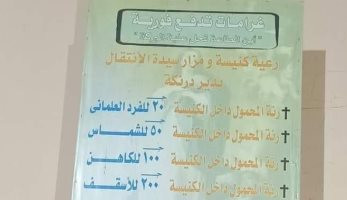 غرامات تدفع فورية
رعية كنيسة و مزار سيدة الانتقال
بدير درنكة
رنة المحمول داخل الكنيسة ٢٠ للفرد العلمانى
رنة المحمول داخل الكنيسة ٥٠ للشماس
رنة المحمول داخل الكنيسة ١٠٠ للكاهن
رنة المحمول داخل الكنيسة ٢٠٠ للأسقف